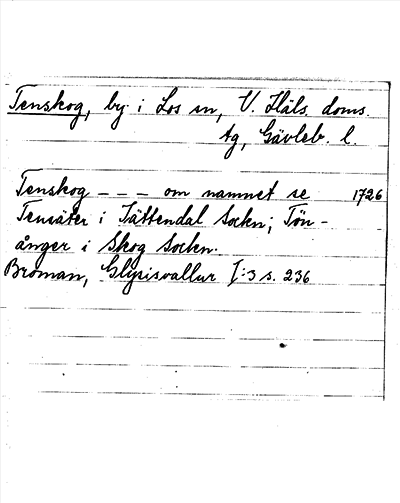 Tenskog, by i Los sn, V. Häls. doms.
tg, Gävleb. l.
Tenskog - - - om namnet se 1726
Tensäter i Jättendal Sockn; Tön-
ånger i Skog Sockn.
Broman, Glysisvallur I:3 s. 236